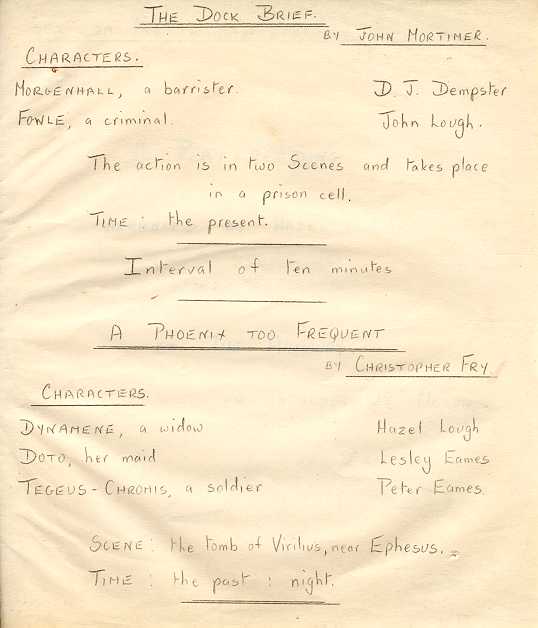 THE DOCK BRIEF.
BY JOHN MORTIMER.
CHARACTERS.
MORGENHALL, a barrister. D. J. Dempster
FOWLE, a criminal. John Lough.
The action is in two Scenes and takes place
in a prison cell.
TIME: the present.
Interval of ten minutes
A PHOENIX TOO FREQUENT
BY CHRISTOPHER FRY
CHARACTERS.
DYNAMENE, a widow Hazel Lough
DOTO, her maid Lesley Eames
TEGEUS-CHROMIS, a soldier Peter Eames.
SCENE: the tomb of Virilius, near Ephesus.
TIME: the past: night.